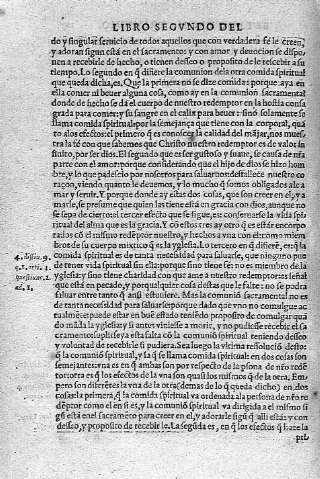 LIBRO SEGVNDO DEL
do y singular servicio de todos aquellos que con verdadera fe le creen,
y adoran segun está en el sacramento: y con amor y devocion se dispo-
nen a recebirle de hecho, o tienen desseo o proposito de le rescebir a su
tiempo. Lo segundo en q̃ difiere la comunion dela otra comida spiritual
que queda dicha, es, Que la primera no se dize comida porque aya en
ella comer ni bever alguna cosa, como ay en la comunion sacramental
donde de hecho se da el cuerpo de nuestro redemptor en la hostia consa
grada para comer: y su sangre en el caliz para bever: sino solamente se
llama comida spiritual: por la semejança que tiene con la corporal, quã
to alos efectos: el primero q̃ es conoscer la calidad del mãjar, nos mues
tra la fe con que sabemos que Christo nuestro redemptor es de valor in
finito, por ser dios. El segundo que es ser gustoso y suave, se causa de nra
parte con el amor: porque considerando que el hijo de dios se hizo hom
bre, y lo que padescio por nosotros para salvarnos: desfallece nuestro co
raçon, viendo quanto le devemos, y lo mucho q̃ somos obligados a le a-
mar y servir. Y porque donde ay estas dos cosas, que son creer en el, y a
marle, se presume que quien las tiene está en gracia con dios, aunque no
se sepa de cierto: el tercer efecto que se sigue, es: conservarse la vida spiri
tual del alma que es la gracia. Y con estos tres ay otro q̃ es estar encorpo
radas cõ el mismo redẽptor nuestro, y hechos a vna con el: como miem
bros de su cuerpo mixto: q̃ es la yglesia. Lo tercero en q̃ difierẽ, es: q̃ la
comida spiritual es de tanta necessidad para salvarse, que ninguno pue
de tener vida spiritual sin ella: porque sino tiene fe: no es miembro de la
yglesia: y sino tiene charidad con que ame a nuestro redemptor: es señal
que está en pecado, y por qualquier cosa destas que le falte: no se podra
salvar entre tanto q̃ ansi estuviere. Mas la comunió sacramental no es
de tanta necessidad para salvarse: porque dado que vno no comulgue ac
tualmẽte: puede estar en buẽ estado teniẽdo proposito de comulgar quã
do mãda la yglesia: y si antes viniesse a morir, y no pudiesse recebir el sa
cramento: suplirse ya esta falta cõ la comunió spiritual teniendo desseo
y voluntad de recebirle si pudiera. Sea luego la vltima resolució desto:
q̃ la comunió spiritual, y la q̃ se llama comida spiritual: en dos cosas son
semejantes: vna es en q̃ ambas son por respecto de la p̃sona de nr̃o redẽ
tor: otra es q̃ los efectos de la vna son quasi los mismos q̃ de la otra. Em
pero son diferẽtes la vna de la otra (demas de lo q̃ queda dicho) en dos
cosas: la primera, q̃ la comida spiritual va ordenada ala persona de nr̃o re
dẽptor como el en si es, y la comunió spiritual va dirigida a el mismo si
gũ está en el sacramẽto para creer en el, y adorarle segũ q̃ alli está: y con
desseo, y proposito de recebirle. La segũda es, en q̃ los efectos q̃ haze la